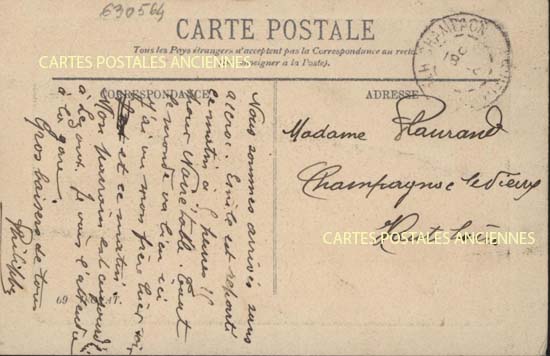 630564
CARTE POSTALE
Tous les Pays étrangers n'acceptent pas la Correspondance au recto
(Se renseigner à la Poste).
CARTES POSTALES ANCIENNES
CORRESPONDANCE
ADRESSE
Nous sommes arrivés sans
accroc. Emile est reparti
ce matin à heures
pour Tout
le monde va bien ici
J'ai vu mon frère hier soir
et ce matin
Mon parrain est
à Je vais l'attendre
à la gare.
Gros baisers de tous
Philippe
Madame Flaurand
Champagnac le Vieux
Hte Loire
CARTES POSTALES ANCIENNES
69